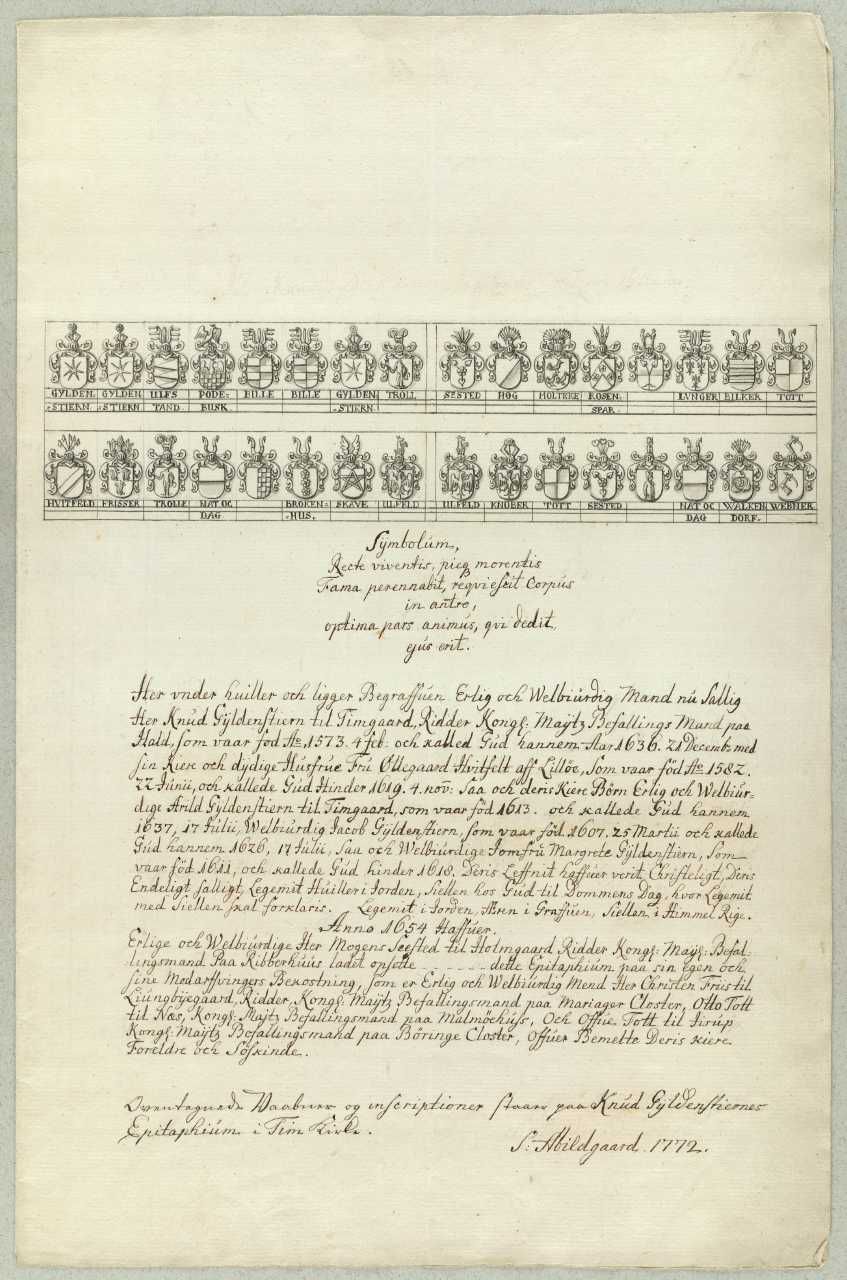 GYLDEN. GYLDEN ULFS PODE= BILLE BILLE GYLDEN TROLL SESTED HOG HOLTEKE ROSEN- LVNGER BILKER TOTT
=STIERN =STIERN TAND BUSK =STIERN SPAR.
HVITFELD FRISSER TROLLE NAT OC BROKEN= SKAVE ULFELD ULFELD KNOBER TOTT SESTED NAT OC WALKEN WEBNER
DAG =HUS. DAG DORF.
Symbolum,
Recte viventis, pieq morentis
Fama perennabit, reqviescit Corpus
in antro,
optima pars animus, qvi dedit,
ejus erit.
Her vnder huiller och ligger Begraffuen Erlig och Welbiurdig Mand nu Sallig
Her Knud Gyldenstiern til Timgaard, Ridder Kongl: Maytz Befallings Mand paa
Hald, som vaar fød Ao. 1573. 4 feb: och kalled Gud hannem Aar 1636. 21 Decemb: med
sin Kiere och dydige Husfrue Fru Øllegaard Hvitfelt aff Lilløe, Som vaar fød Ao. 1582.
22 Junii, och kallede Gud Hinder 1619. 4. nov: Saa och deris Kiere Børn Erlig och Welbiur-
dige Arild Gyldenstiern til Timgaard, som vaar fød 1613. och kallede Gud hannem
1637, 17 Julii, Welbiurdig Jacob Gyldenstiern, som vaar fød 1607. 25 Martii och kallede
Gud hannem 1626, 17 Julii, Saa och Welbiurdige Jomfru Margrete Gyldenstiern, Som
vaar fød 1611, och kallede Gud hinder 1618. Deris Leffnit haffuer verit Christeligt, Deris
Endeligt salligt, Legemit Huiller i Jorden, Siellen hos Gud til Dommens Dag, hvor Legemit
med Siellen skal forklaris. Legemit i Jorden, Æren i Graffuen, Siellen i Himmel Rige.
Anno 1654 Haffuer.
Erlige och Welbiurdige Her Mogens Seested til Holmgaard Ridder Kongl: Mayt: Befal-
lingsmand Paa Ribberhuus ladet opsette - - - - - dette Epitaphium paa sin egen och
sine Medarffvingers Bekostning, som er Erlig och Welbiurdig Mend Her Christen Friis til
Liungbyegaard, Ridder, Kongl: Maytz Befallingsmand paa Mariager Closter, Otto Tott
til Næs, Kongl: Majtz Befallingsmand paa Malmöehuss, Och Offue Tott til Jirup
Kongl: Maytz Befallingsmand paa Böringe Closter, Offuer Bemelte Deris kiere
Foreldre och Söskinde.
Oventegnede Vaabner og inscriptioner staaer paa Knud Gyldenstiernes
Epitaphium i Tim Kirke.
S: Abildgaard. 1772.